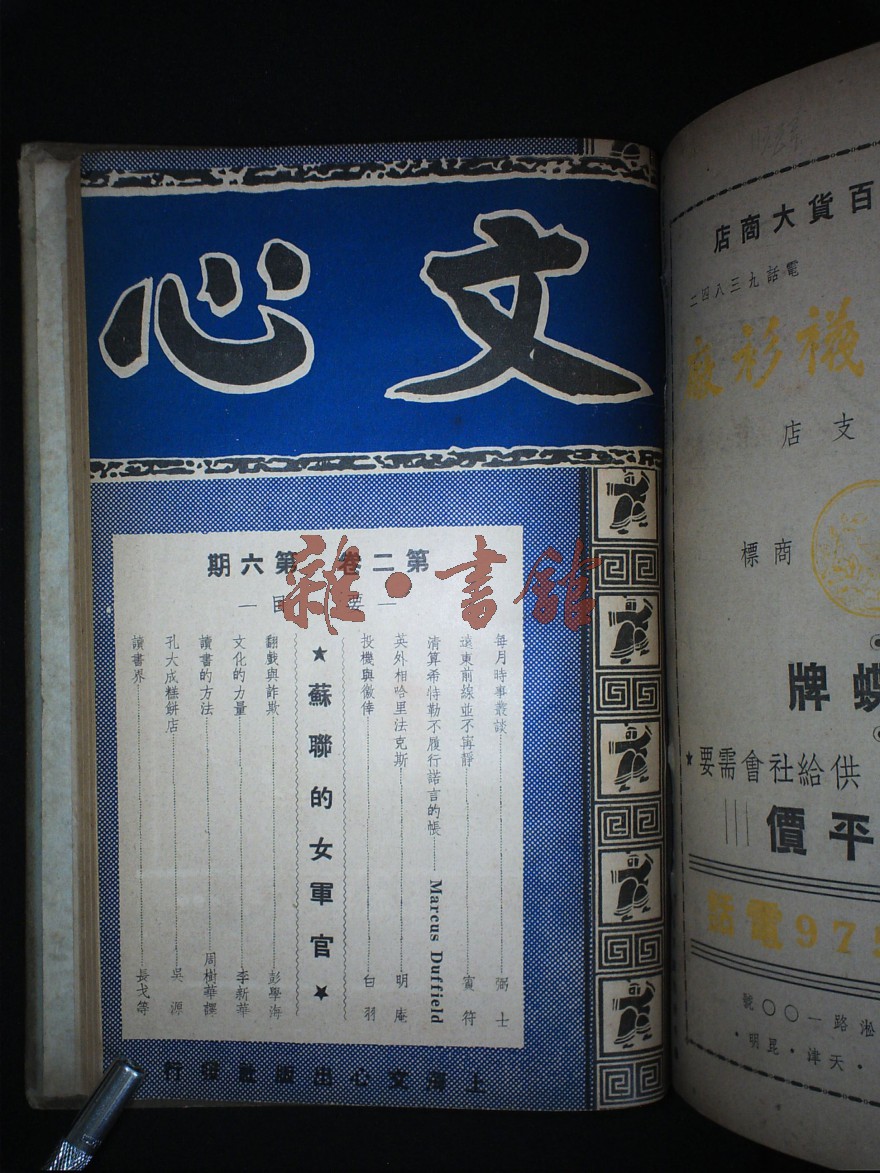 文心
第二卷 第六期
一要目一
每月時事叢談 弼士
遠東前線並不寧靜 賓符
清算希特勒不履行諾言的帳 Marcus Duffield
英外相哈里法克斯 明庵
投機與徼倖 白羽
★蘇聯的女軍官★
翻戲與詐欺 彭學海
文化的力量 李新華
讀書的方法 周樹華譯
孔大成糕餅店 吳源
讀書界 長戈等
上海文心出版社發行
雜·書館
百貨大商店
電話九三八四二
襪衫廠
支店
商標
蝶牌
★供給社會需要
平價
電話975
淞路一〇〇號
·天津·昆明·